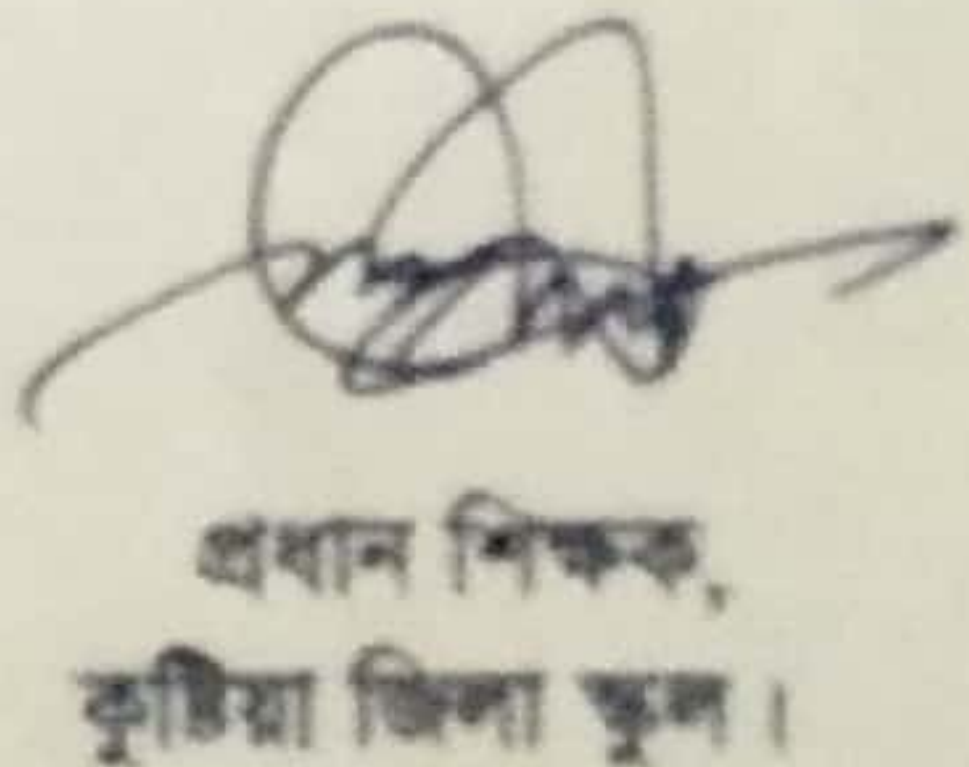 প্রধান শিক্ষক,
কুষ্টিয়া জিলা স্কুল।